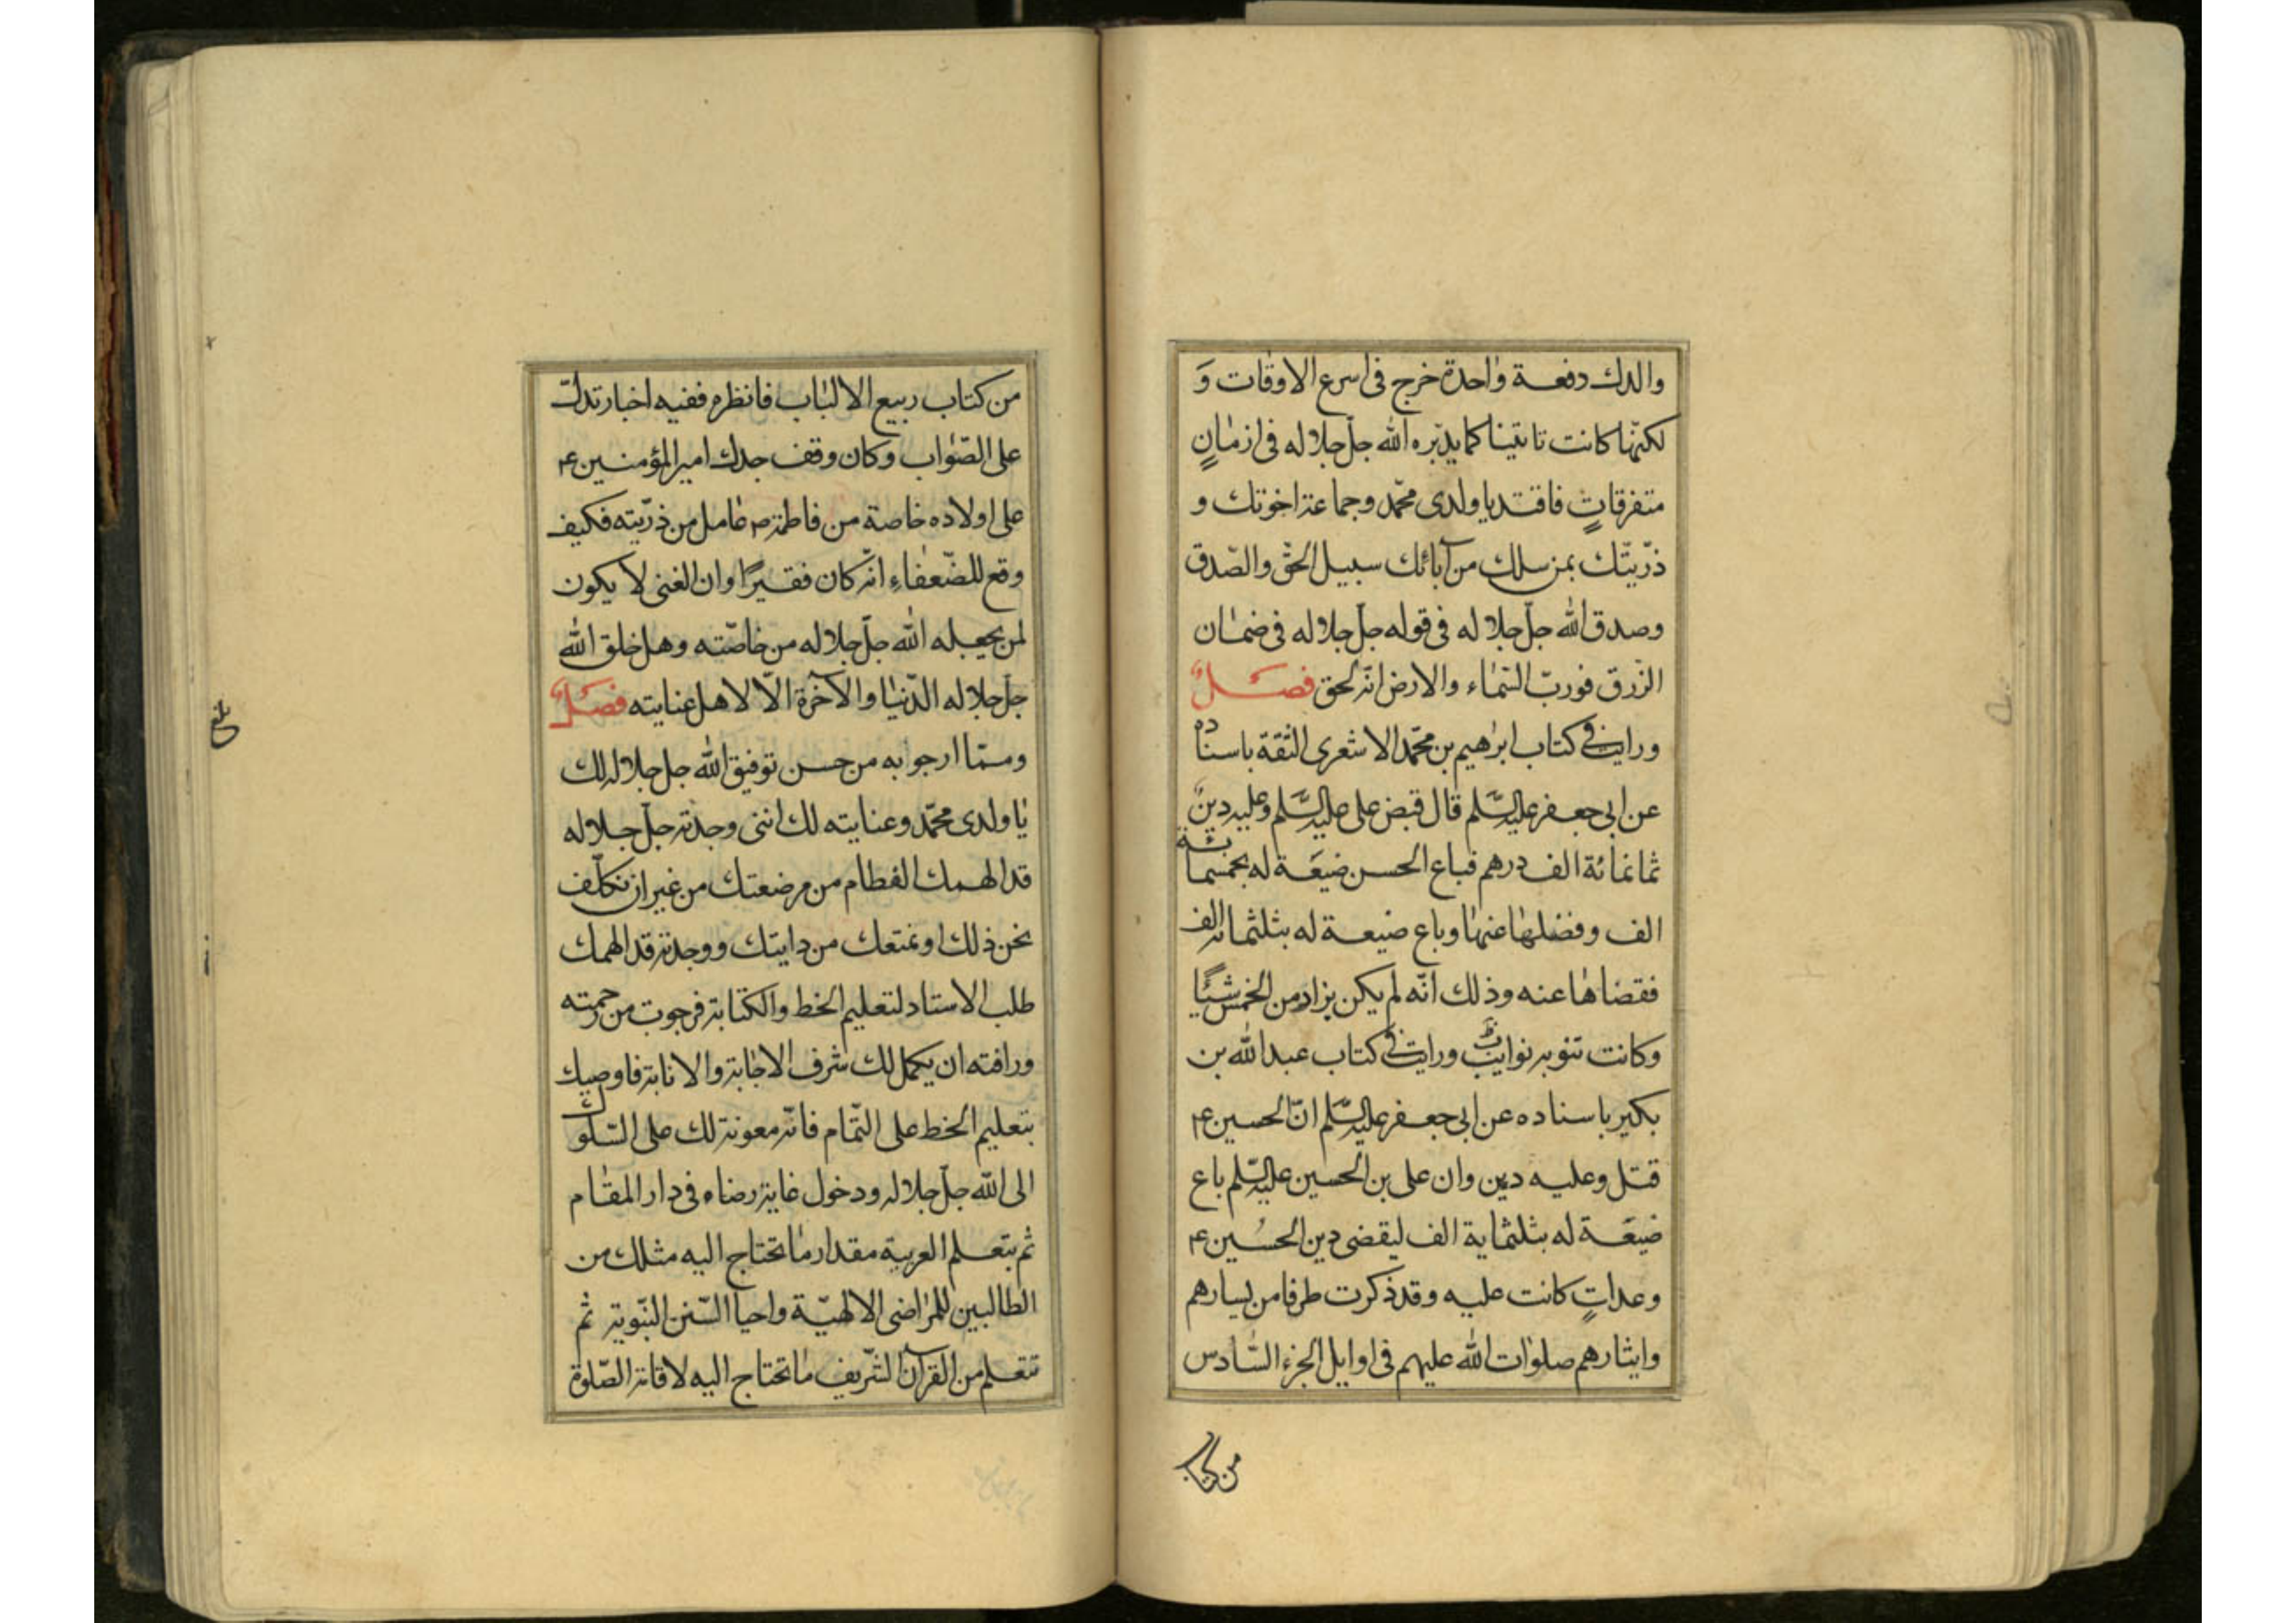 والدك دفعة واحدة خرج فى اسرع الاوقات وَ
لكنّها كانت تاتينا كما يدبّره الله جلّ جلاله فى ازمانٍ
متفرقاتٍ فاقتد يا ولدى محمّد وجماعة اخوتك و
ذرّيّتك بمن سلك من آبائك سبيل الحقّ والصّدق
وصدق الله جلّ جلاله فى قوله جلّ جلاله فى ضمان
الرّزق فوربّ السّماء والارض انّه لحق فصلٌ
ورايت فى كتاب ابراهيم بن محمّد الاشعرى الثقة باسناده
عن ابى جعفر عليه السّلم قال قبض على عليه السّلم وعليه دينٌ
ثمانمائة الف درهم فباع الحسن ضيعَة له بخمسمائة
الف وفضلها عنها وباع ضيعة له بثلثمائة الف
فقضاها عنه وذلك انّه لم يكن يزاد من الخمس شيئًا
وكانت تنوبه نوايب ورايت فى كتاب عبد الله بن
بكير باسناده عن ابى جعفر عليه السّلم انّ الحسين ع
قتل وعليه دين وان على بن الحسين عليه السّلم باع
ضيعَة له بثلثماية الف ليقضى دين الحسُين ع
وعداتٍ كانت عليه وقد ذكرت طرفا من يسارهم
وايثارهم صلوات الله عليهم فى اوايل الجزء السّادس
من كتاب
من كتاب ربيع الالباب فانظره ففيه اخبار تدلّك
على الصّواب وكان وقف جدك امير المؤمنين ع
على اولاده خاصة من فاطمة ع عامل من ذرّيته فكيف
وقع للضّعفاءِ انّه كان فقيرًا وان الغنى لا يكون
لمن يجعله الله جلّ جلاله من خاصّته وهل خلق الله
جلّ جلاله الدّنيا والآخرة الّا لاهل عنايته فصلٌ
وممّا ارجوا به من حسن توفيق الله جل جلاله لك
يا ولدى محمّد وعنايته لك اننى وجدته جلّ جلاله
قد الهمك الفطام من مرضعتك من غير ان نكلّف
نحن ذلك او نمنعك من دايتك ووجدته قد الهمك
طلب الاستاد لتعليم الخط والكتابة فرجوت من رحمته
ورافته ان يكمل لك شرف الاجابة والانابة فاوصيك
بتعليم الخط على التّمام فانّه معونة لك على السّلوك
الى الله جلّ جلاله ودخول غاية رضاه فى دار المقام
ثم بتعلم العربية مقدار ما تحتاج اليه مثلك من
الطالبين للمراضى الالهيّة واحيا السّنن النّبوية ثم
تتعلم من القرآن الشّريف ما تحتاج اليه لاقامة الصّلوة
بلغ